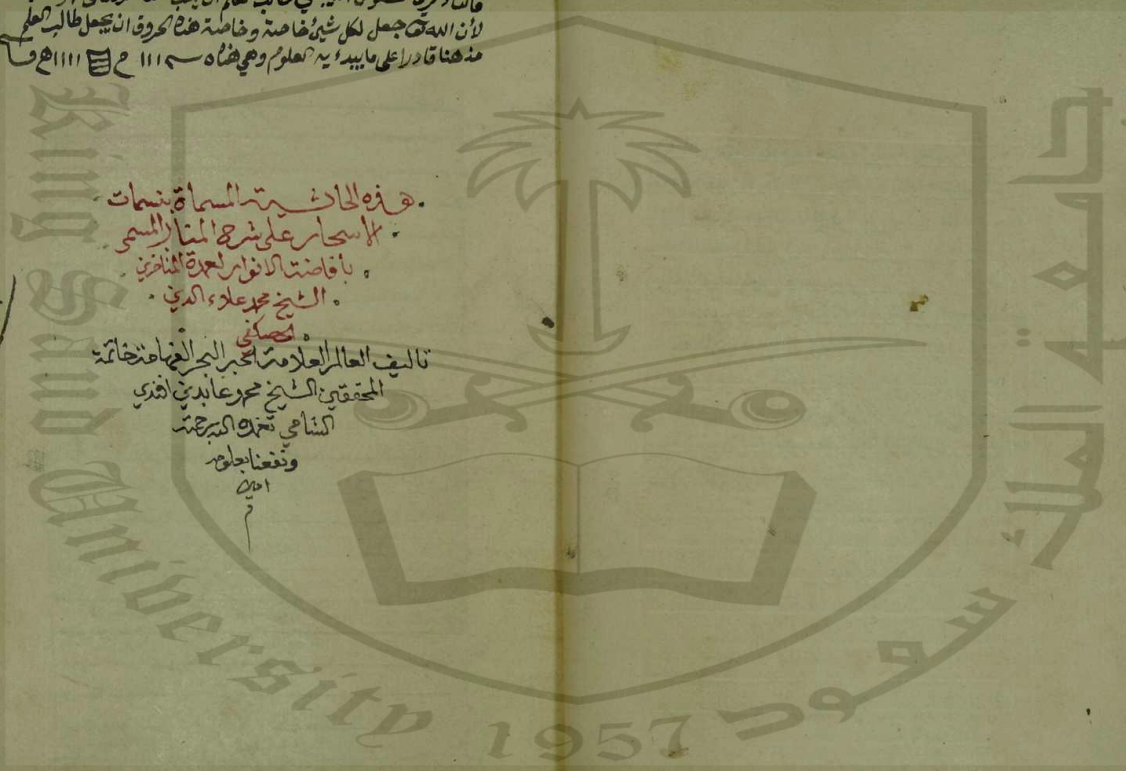 لأن الله تعالى جعل لكل شيئ خاصة وخاصة هذه الحروف ان يجعل طالب العلم
قادرا على ما يبدء به العلوم وهي هذه
هذه الحاشية المسماة بنسمات
الاسحار على شرح المنار المسمى
بافاضة الانوار لعمدة المتأخرين
الشيخ محمد علاء الدين
الحصكفي
تاليف العالم العلامة الحبر البحر الفهامة خاتمة
المحققين الشيخ محمد عابدين افندي
الشامي تغمده الله برحمته
ونفعنا بعلومه
امين
م
جامعة الملك سعود
King Saud University 1957